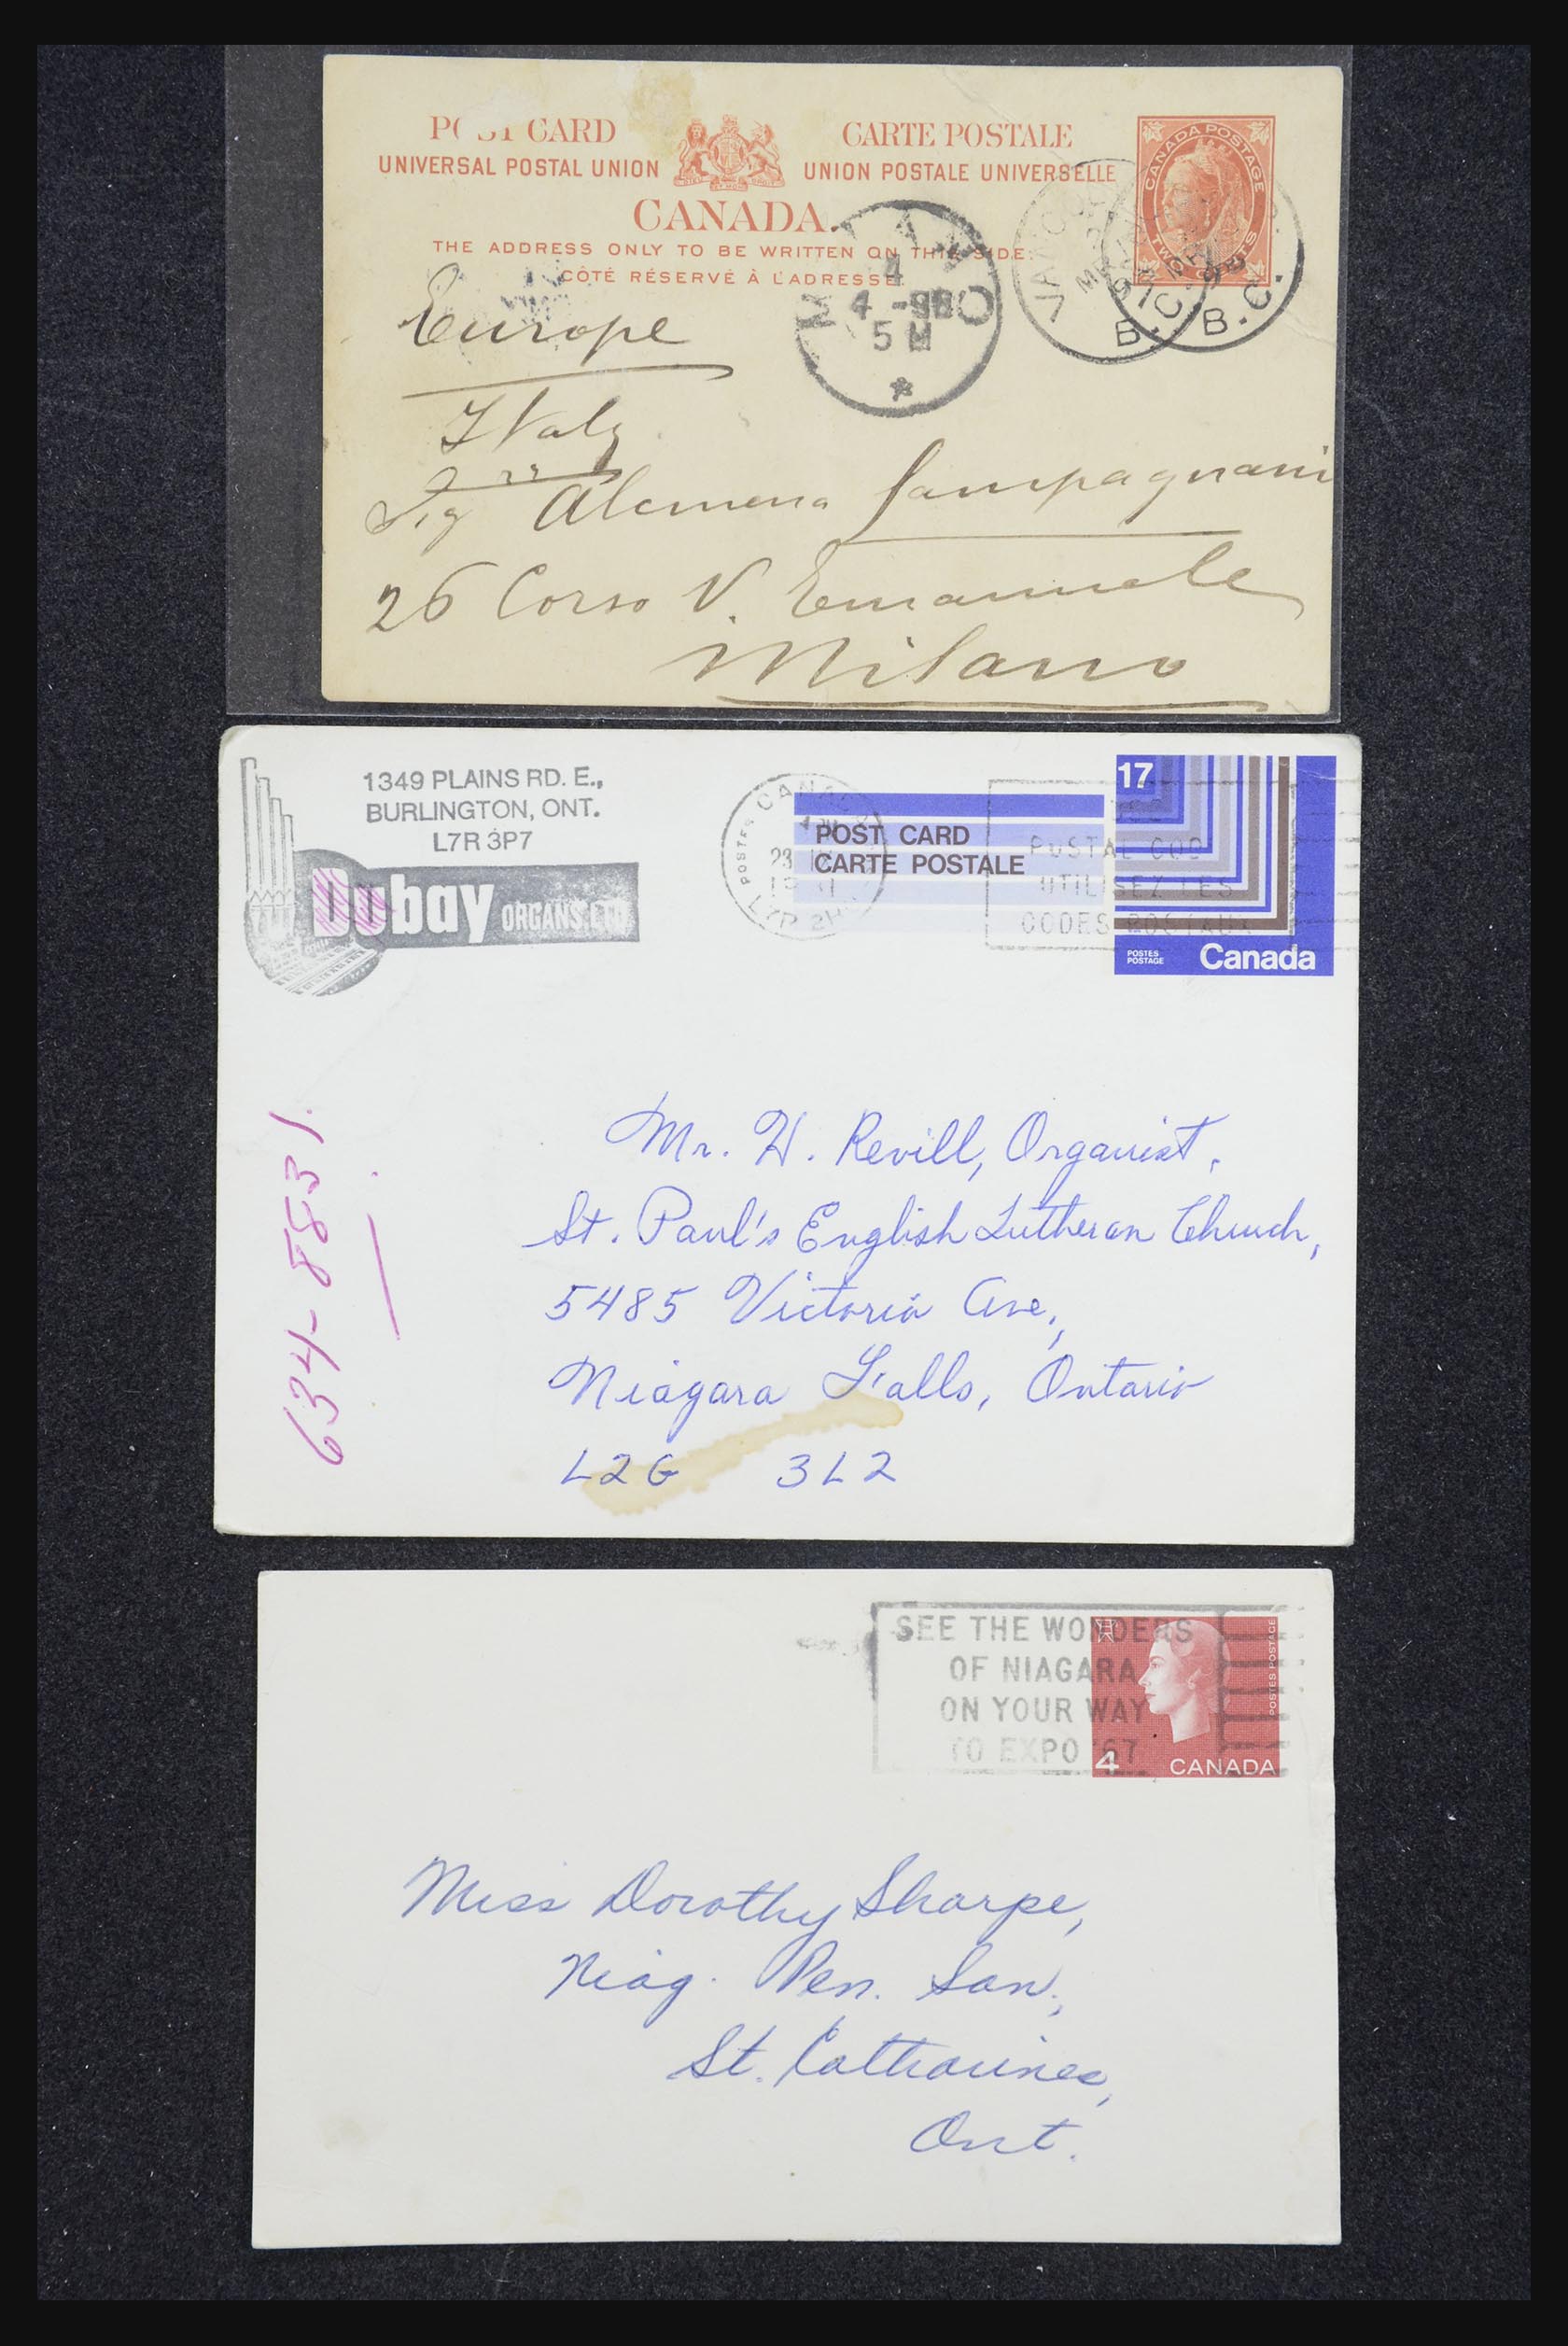 POST CARD
CARTE POSTALE
UNIVERSAL POSTAL UNION
UNION POSTALE UNIVERSELLE
CANADA.
THE ADDRESS ONLY TO BE WRITTEN ON THIS SIDE.
CÔTÉ RÉSERVÉ À L'ADRESSE
CANADA POSTAGE
TWO CENTS
MILANO
4
4 -98
5 M
B.C.
B.C.
Europe
Italy
Sig Alemena
26 Corso V. Emanuele
Milano
1349 PLAINS RD. E.,
BURLINGTON, ONT.
L7R 3P7
Dubay ORGANS LTD
POST CARD
CARTE POSTALE
CANADA
POSTES
23
POSTAL COD
UTILISEZ LES
CODES POSTAUX
17
POSTES
POSTAGE
Canada
634-8831
Mr. H. Revill, Organist,
St. Paul's English Lutheran Church,
5485 Victoria Ave,
Niagara Falls, Ontario
L2G 3L2
SEE THE WONDERS
OF NIAGARA
ON YOUR WAY
TO EXPO '67
POSTES POSTAGE
4 CANADA
Miss Dorothy Sharpe,
Niag. Pen. San.,
St. Catharines,
Ont.